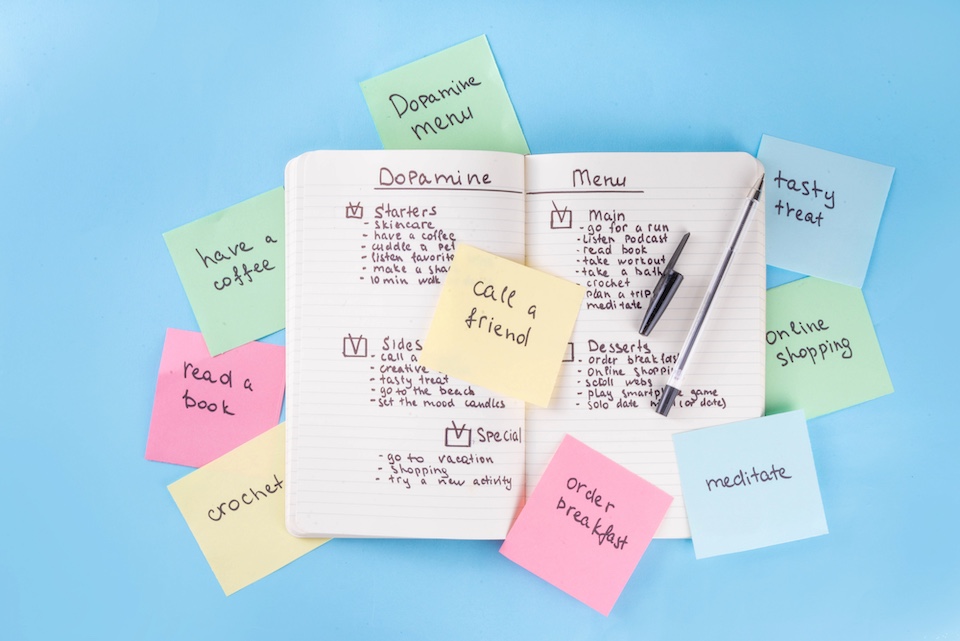 Dopamine
menu
have a
coffee
read a
book
crochet
Dopamine Menu
Starters
- skincare
- have a coffee
- cuddle a pet
- listen favorite
- make a
- 10 min walk
Sides
- call a
- creative
- tasty treat
- go to the beach
- set the mood candles
Special
- go to vacation
- shopping
- try a new activity
call a
friend
Main
- go for a run
- Listen Podcast
- read book
- take workout
- take a bath
- crochet
- plan a trip
- meditate
Desserts
- order breakfast
- online shoppi
- scroll webs
- play smartph e game
- solo date (or date)
tasty
treat
online
shopping
meditate
order
breakfast